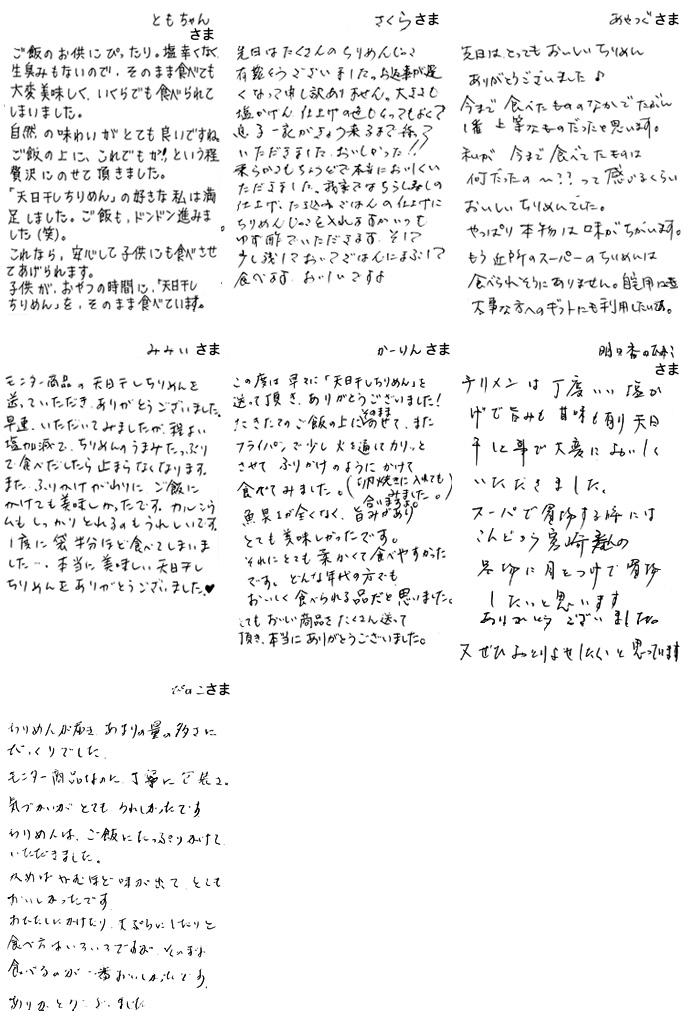 ともちゃん
さま
ご飯のお供にぴったり。塩辛くなく
生臭みもないので、そのまま食べても
大変美味しく、いくらでも食べられて
しまいました。
自然の味わいがとても良いですね。
ご飯の上に、これでもか!という程
贅沢にのせて頂きました。
「天日干しちりめん」の好きな私は満
足しました。ご飯も、ドンドン進みま
した(笑)。
これなら、安心して子供にも食べさせ
てあげられます。
子供が、おやつの時間に、「天日干し
ちりめん」を、そのまま食べています。
さくらさま
先日はたくさんのちりめんじゃこ
有難うございました。お返事が遅
くなって申し訳ありません。大きさも
塩かげん 仕上げの色もとってもよくて
息子一家がきょう来るまで待って
いただきました おいしかった!!
柔らかさもちょうどで本当においしくい
ただきました。我家ではちらし寿しの
仕上げ、たき込みごはんの仕上げに
ちりめんじゃこを入れますがいつも
ゆず酢でいただきます そして
少し残しておいてごはんにまぶして
食べます おいしいですよ
あやつぐさま
先日は、とってもおいしいちりめん
ありがとうございました♪
今まで食べたもののなかでたぶん
1番 上等なものだったと思います。
私が 今まで食べてたものは
何だったの〜??って感じるくらい
おいしいちりめんでした。
やっぱり本物は味がちがいます。
もう近所のスーパーのちりめんは
食べられそうにありません。自宅用は
大事な方へのギフトにも利用したいな。
みみいさま
モニター商品の天日干しちりめんを
送っていただき、ありがとうございました。
早速、いただいてみましたが、程よい
塩加減で、ちりめんのうまみたっぷり
で食べだしたら止まらなくなります。
また、ふりかけがわりに、ご飯に
かけても美味しかったです。カルシウ
ムもしっかりとれるのもうれしいです。
1度に袋半分ほど食べてしまいま
した…。本当に美味しい天日干し
ちりめんをありがとうございました♥
かーりんさま
この度は早々に「天日干しちりめん」を
送って頂き、ありがとうございました!
たきたてのご飯の上にそのままのせて、また
フライパンで少し火を通してカリッと
させて ふりかけのように かけて
食べてみました。(卵焼きに入れても
合いますよ。みました。)
魚臭さが全くなく、旨みがあり
とても美味しかったです。
それにとても柔かくて食べやすかった
です。どんな年代の方でも
おいしく食べられる品だと思いました。
とてもおいしい商品をたくさん送って
頂き、本当にありがとうございました。
明日香の
さま
チリメンは丁度いい塩か
げで旨みも甘味も有り天日
干しと事で大変においしく
いただきました。
スーパで買物する時には
こんどから宮崎産の
品物に目をつけて買物
したいと思います
ありがとうございました。
又ぜひおとりよせしたいと思っています
ぴのこさま
ちりめんが届き、あまりの量の多さに
びっくりでした。
モニター商品なのに、丁寧に包装と。
気づかいがとてもうれしかったです
ちりめんは、ご飯にたっぷりかけて
いただきました。
かめばかむほど味が出て、とても
おいしかったです。
おひたしにかけたり、天ぷらにしたりと
食べ方はいろいろですが、そのまま
食べるのが一番おいしかったです。
ありがとうございました